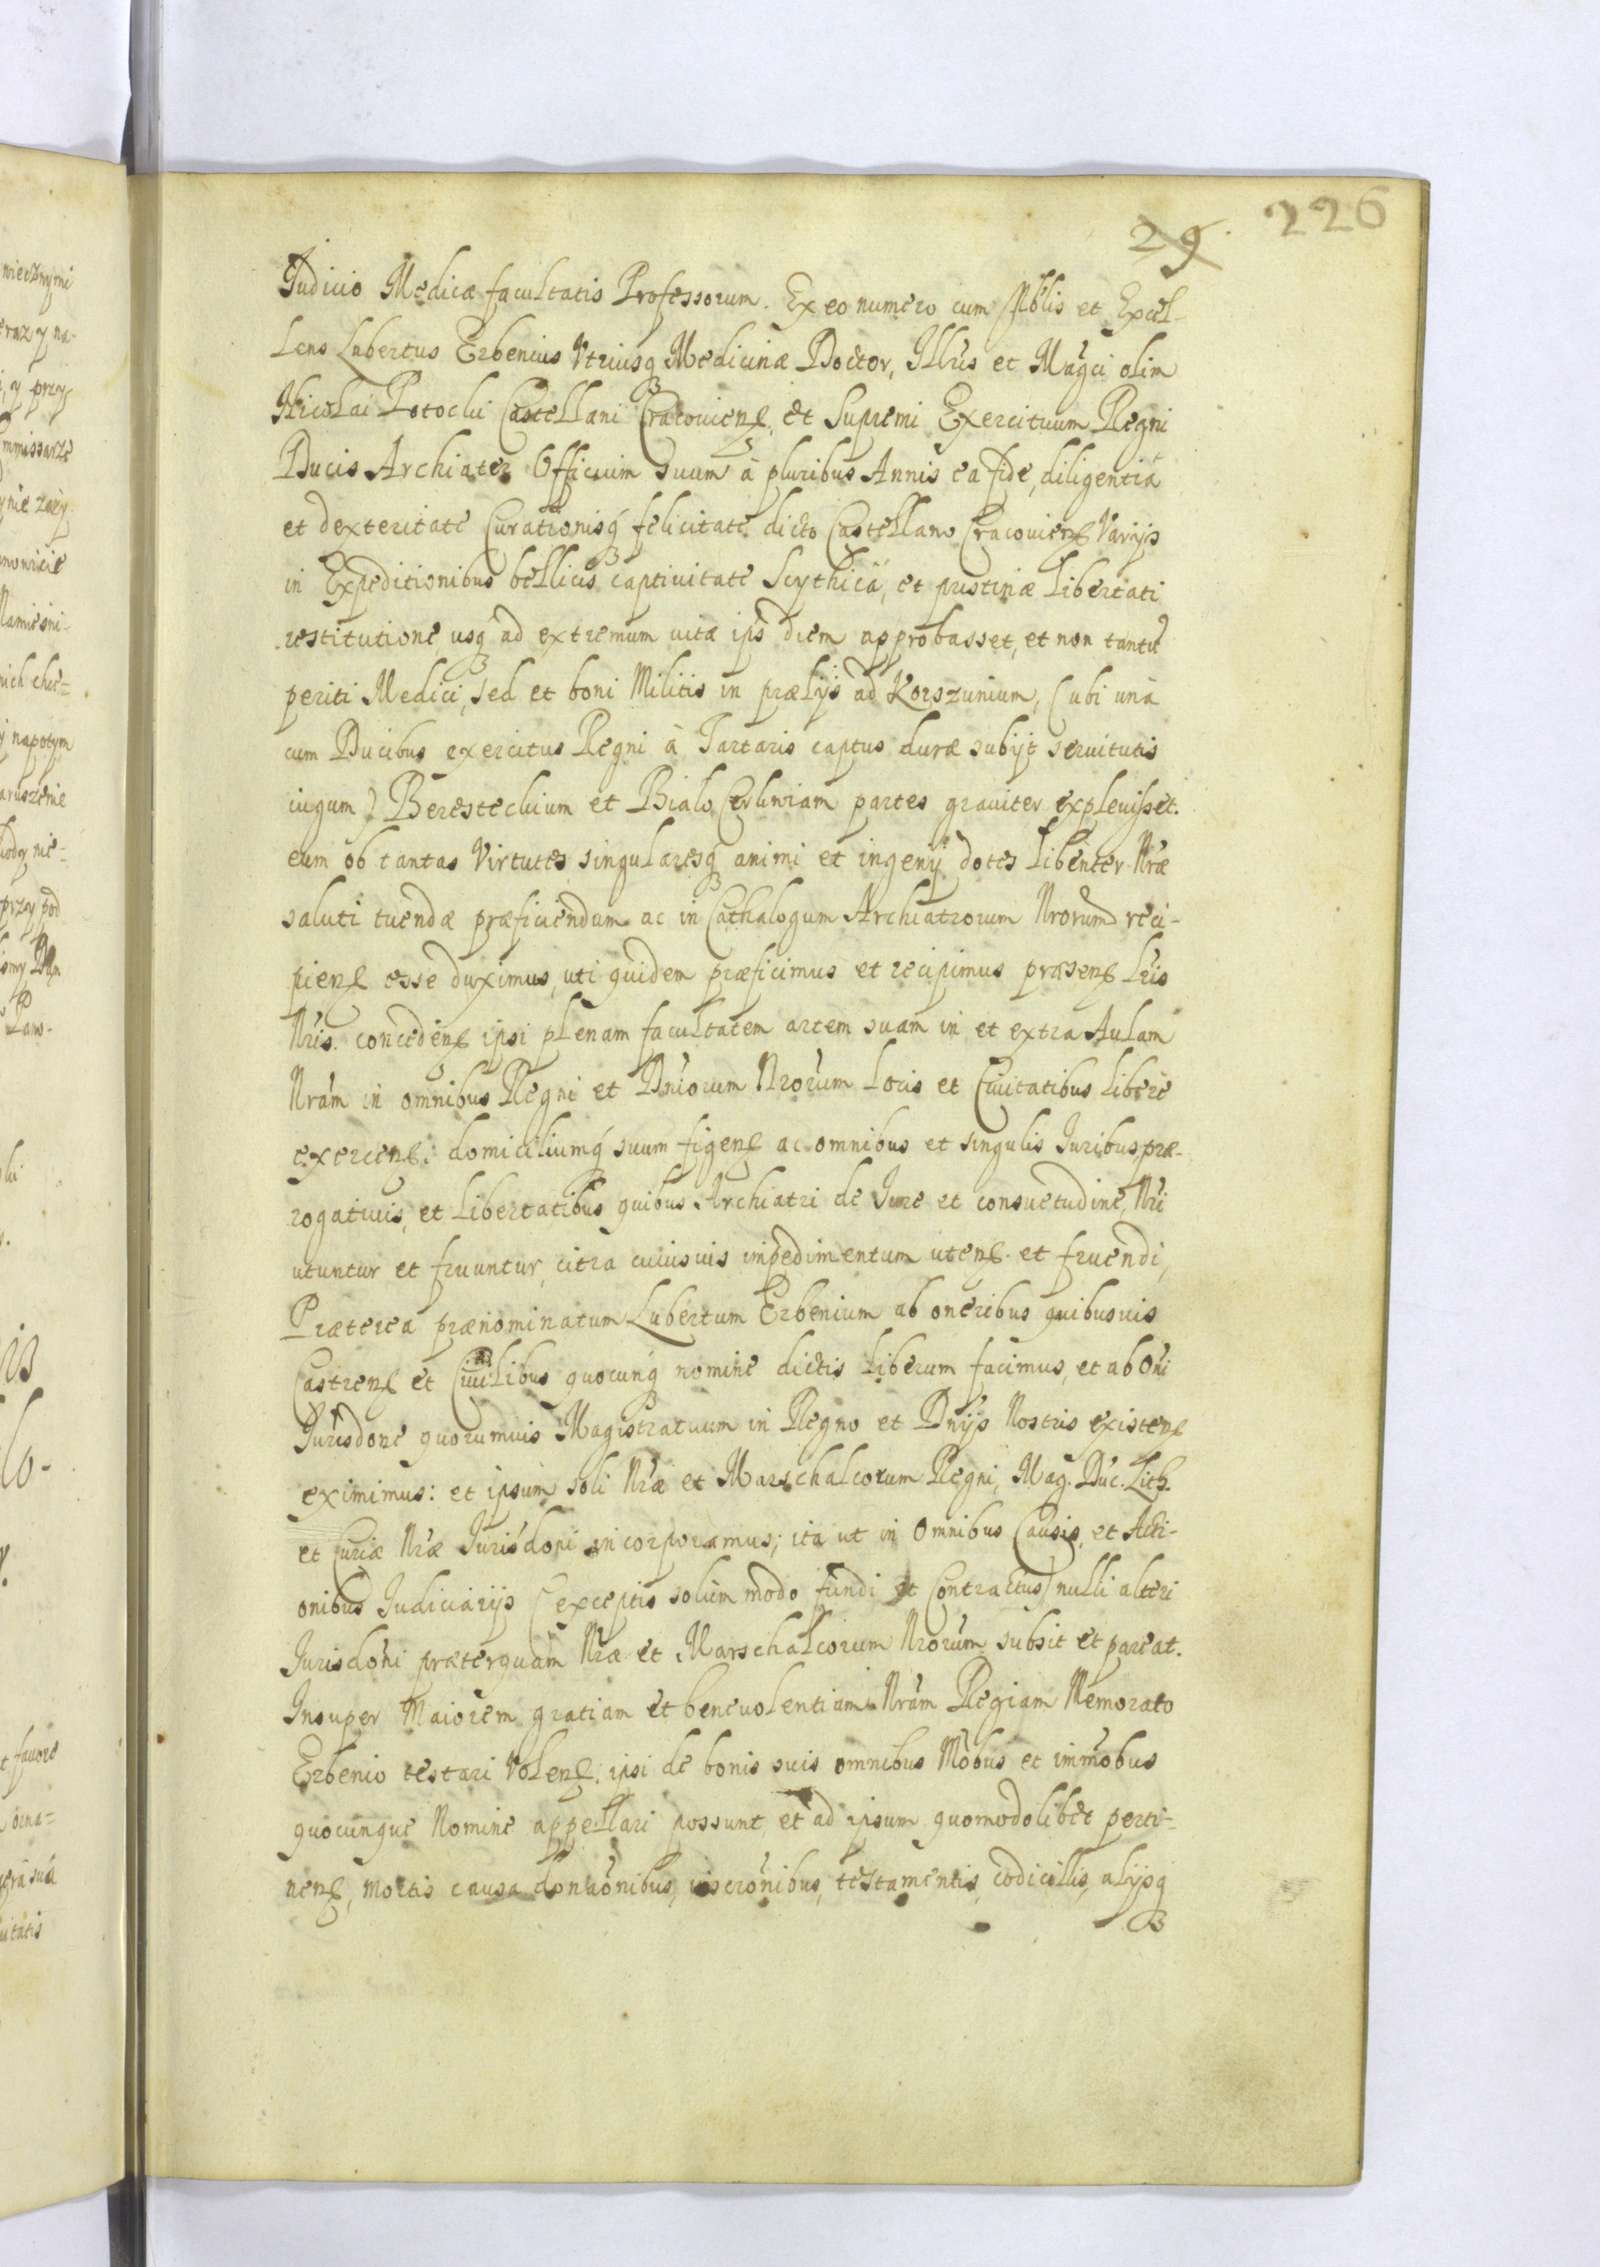 29. 226
Judicio Medicæ facultatis Professorum. Ex eo numero cum Nblis et Excel-
lens Lubertus Erbenius Vtriusq Medicinæ Doctor, Jllris et Magci olim
Nicolai Potocki Castellani Cracovien. et Supremi Exercituum Regni
Ducis Archiater Officium Suum à pluribus Annis ea fide, diligentiâ
et dexteritate Curationisq felicitate dicto Castellano Cracovien Varijs
in Expeditionibus bellicis captivitate Scythicâ, et pristinæ Libertati
restitutione, usq ad extremum vitæ ips diem approbasset, et non tantu
periti Medici, sed et boni Militis in prælijs ad Korszunium, (ubi unà
cum Ducibus exercitus Regni à Tartaris captus duræ subijt servitutis
iugum) Beresteckium et Bialo Cerkwiam partes graviter explevisset.
eum ob tantas Virtutes singularesq animi et ingenij dotes Libenter Nræ
saluti tuendæ præficiendum ac in Cathalogum Archiatrorum Nrorum reci-
pien esse duximus, uti quidem præficimus et recipimus præsen Lris
Nris. conceden ipsi plenam facultatem artem suam in et extra Aulam
Nram in omnibus Regni et Dniorum Nrorum Locis et Civitatibus Libere
exercen. domiciliumq suum figen ac omnibus et singulis Juribus præ-
rogativis, et Libertatibus quibus Archiatri de Jure et consuetudine, Nri
utuntur et fruuntur, citra cuiusvis impedimentum uten. et fruendi,
Præterea prænominatum Lubertum Erbenium ab oneribus quibusvis
Castren et Civilibus quocunq nomine dictis Liberum facimus, et ab Oni
Jurisdone quorumvis Magistratuum in Regno et Dnijs Nostris existen
eximimus: et ipsum soli Nræ et Marschalcorum Regni, Mag. Duc. Lith.
et Curiæ Nræ Jurisdoni incorporamus; ita ut in Omnibus Causis, et Acti-
onibus Judiciarijs (exceptis solummodo fundi et Contractus) nulli alteri
Jurisdoni præterquam Nræ et Marschalcorum Nrorum subsit et pareat.
Insuper Maiorem gratiam et benevolentiam Nram Regiam Memorato
Erbenio testari Volen. ipsi de bonis suis omnibus Mobus et immobus
quocunque Nomine appellari possunt, et ad ipsum quomodolibet perti-
nen, mortis causa donaonibus, inscronibus, testamentis, codicillis, alijsq